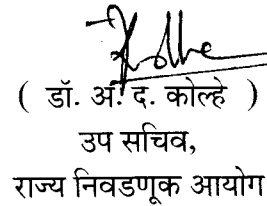 Kolhe
( डॉ. अ. द. कोल्हे )
उप सचिव,
राज्य निवडणूक आयोग